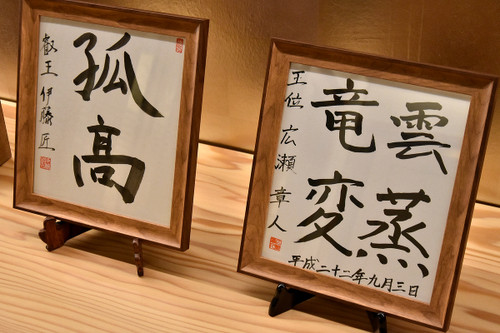 孤高
叡王 伊藤匠
雲蒸
竜変
王位 広瀬章人
平成二十二年九月三日